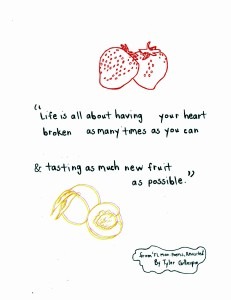 "Life is all about having your heart
broken as many times as you can
& tasting as much new fruit
as possible."
from
By Tyler Gillespie